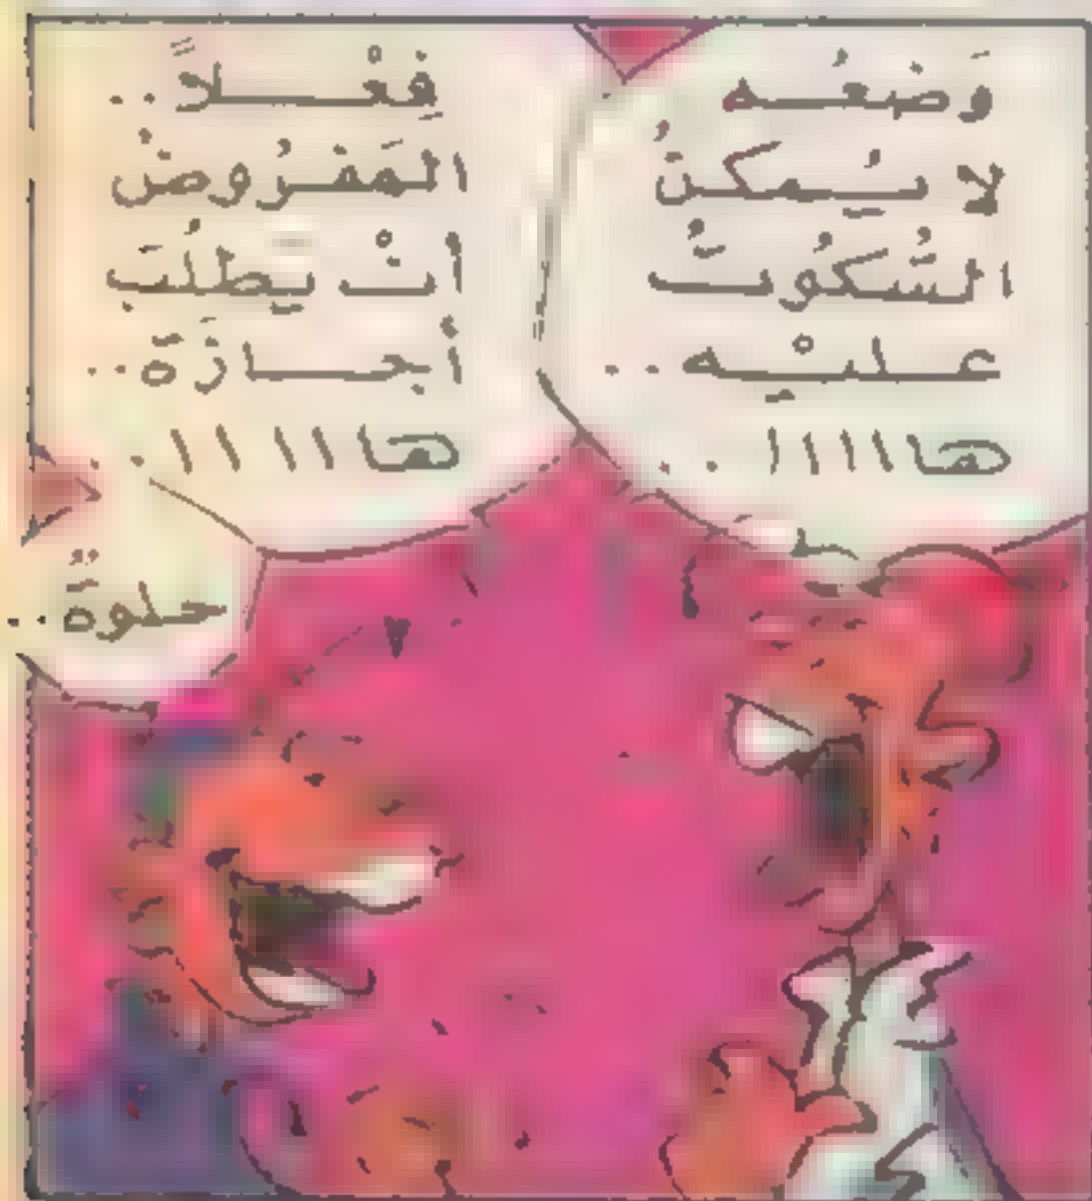 وَضْعُه
لا يُمكنُ
السُّكُوتُ
عليْه..
ها ا ا ا ا..
فِعْلاً..
المَفرُوضْ
أنْ يَطلُبَ
أجازَة..
ها ا ا ا ا ا..
حلوة..